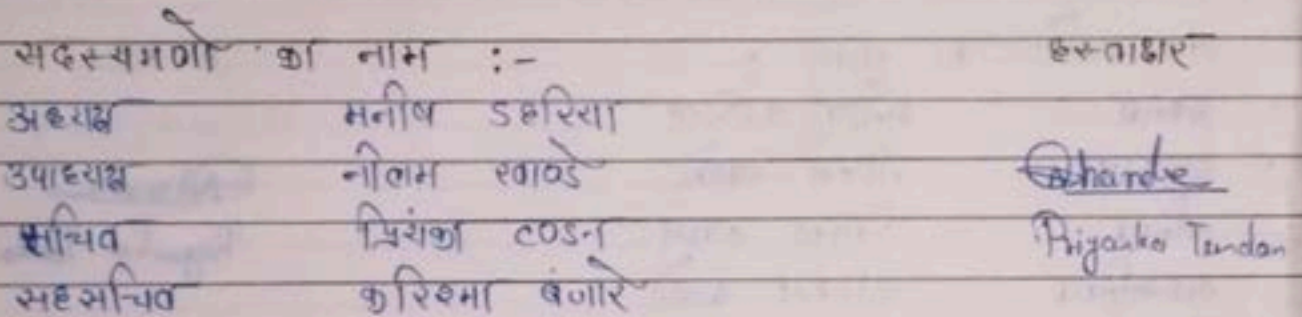 सदस्यगणों का नाम :- हस्ताक्षर
अध्यक्ष मनीष डहरिया
उपाध्यक्ष नीलम खाण्डे
सचिव प्रियंका टण्डन Priyanka Tandan
सहसचिव करिश्मा बंजारे